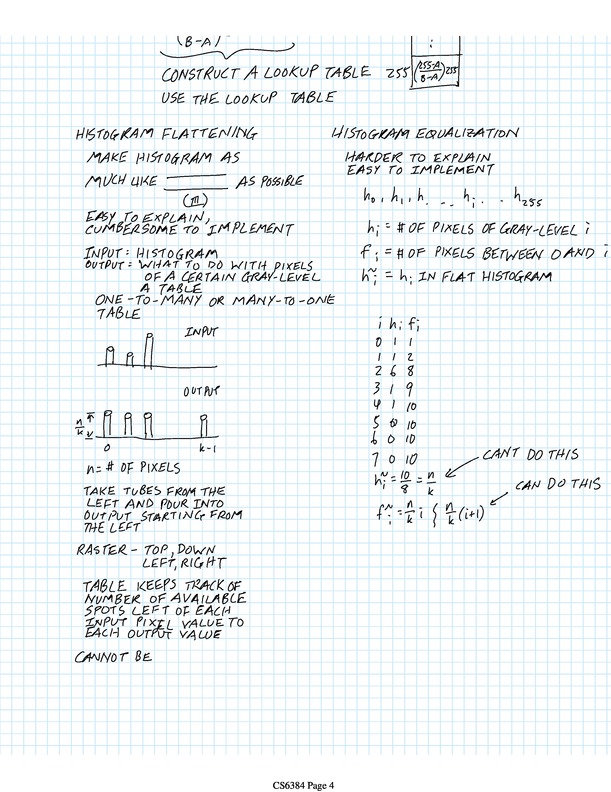 (B-A)
CONSTRUCT A LOOKUP TABLE 255 (255-A/B-A)255
USE THE LOOKUP TABLE
HISTOGRAM FLATTENING
MAKE HISTOGRAM AS
MUCH LIKE AS POSSIBLE
EASY TO EXPLAIN,
CUMBERSOME TO IMPLEMENT
INPUT: HISTOGRAM
OUTPUT: WHAT TO DO WITH PIXELS
OF A CERTAIN GRAY-LEVEL
A TABLE
ONE-TO-MANY OR MANY-TO-ONE
TABLE
INPUT
OUTPUT
n/k
0 k-1
n = # OF PIXELS
TAKE TUBES FROM THE
LEFT AND POUR INTO
OUTPUT STARTING FROM
THE LEFT
RASTER - TOP, DOWN
LEFT, RIGHT
TABLE KEEPS TRACK OF
NUMBER OF AVAILABLE
SPOTS LEFT OF EACH
INPUT PIXEL VALUE TO
EACH OUTPUT VALUE
CANNOT BE
HISTOGRAM EQUALIZATION
HARDER TO EXPLAIN
EASY TO IMPLEMENT
h0, h1, h. ... hi. . h255
hi = # OF PIXELS OF GRAY-LEVEL i
fi = # OF PIXELS BETWEEN 0 AND i
h̃i = hi IN FLAT HISTOGRAM
i hi fi
0 1 1
1 1 2
2 6 8
3 1 9
4 1 10
5 0 10
6 0 10
7 0 10
h̃i = 10/8 = n/k
CANT DO THIS
f̃i = n/k i { n/k (i+1)
CAN DO THIS
CS6384 Page 4